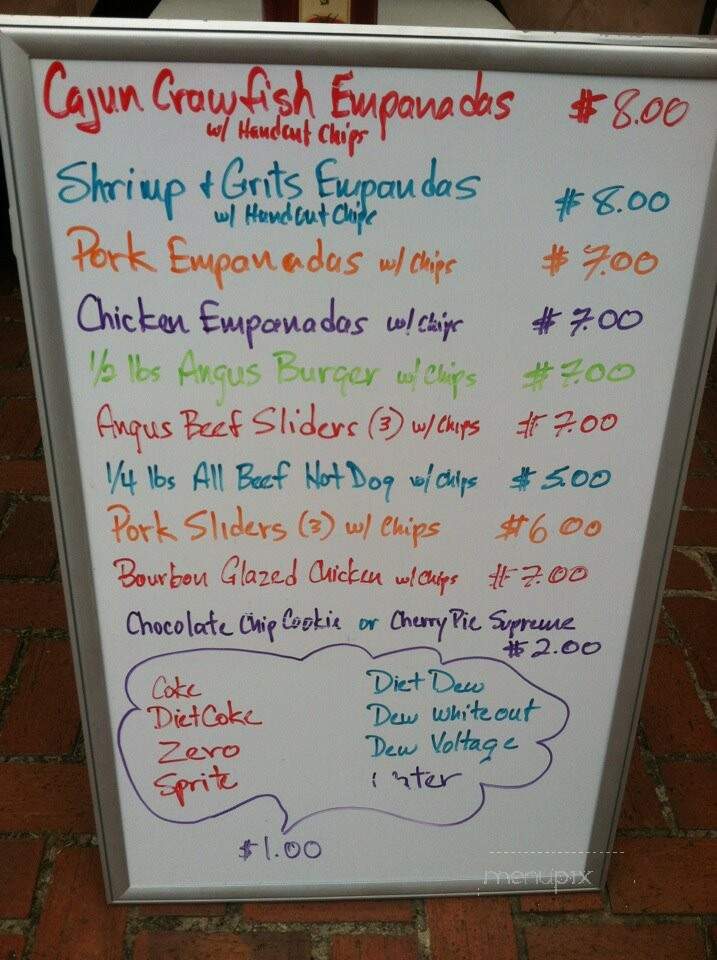 Cajun Crawfish Empanadas $8.00
w/ Handcut Chips
Shrimp + Grits Empandas $8.00
w/ Handcut Chips
Pork Empanadas w/ Chips $7.00
Chicken Empanadas w/ Chips $7.00
1/2 lbs Angus Burger w/ Chips $7.00
Angus Beef Sliders (3) w/ Chips $7.00
1/4 lbs All Beef Hot Dog w/ Chips $5.00
Pork Sliders (3) w/ Chips $6.00
Bourbon Glazed Chicken w/ Chips $7.00
Chocolate Chip Cookie or Cherry Pie Supreme
$2.00
Coke Diet Dew
Diet Coke Dew Whiteout
Zero Dew Voltage
Sprite
$1.00
menupix